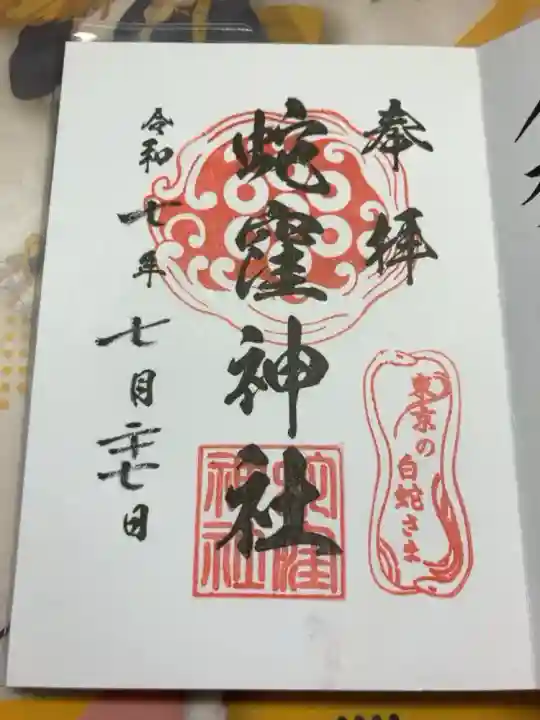 奉拝
東京の白蛇さま
蛇窪神社
蛇窪
神社
令和七年
七月二十七日